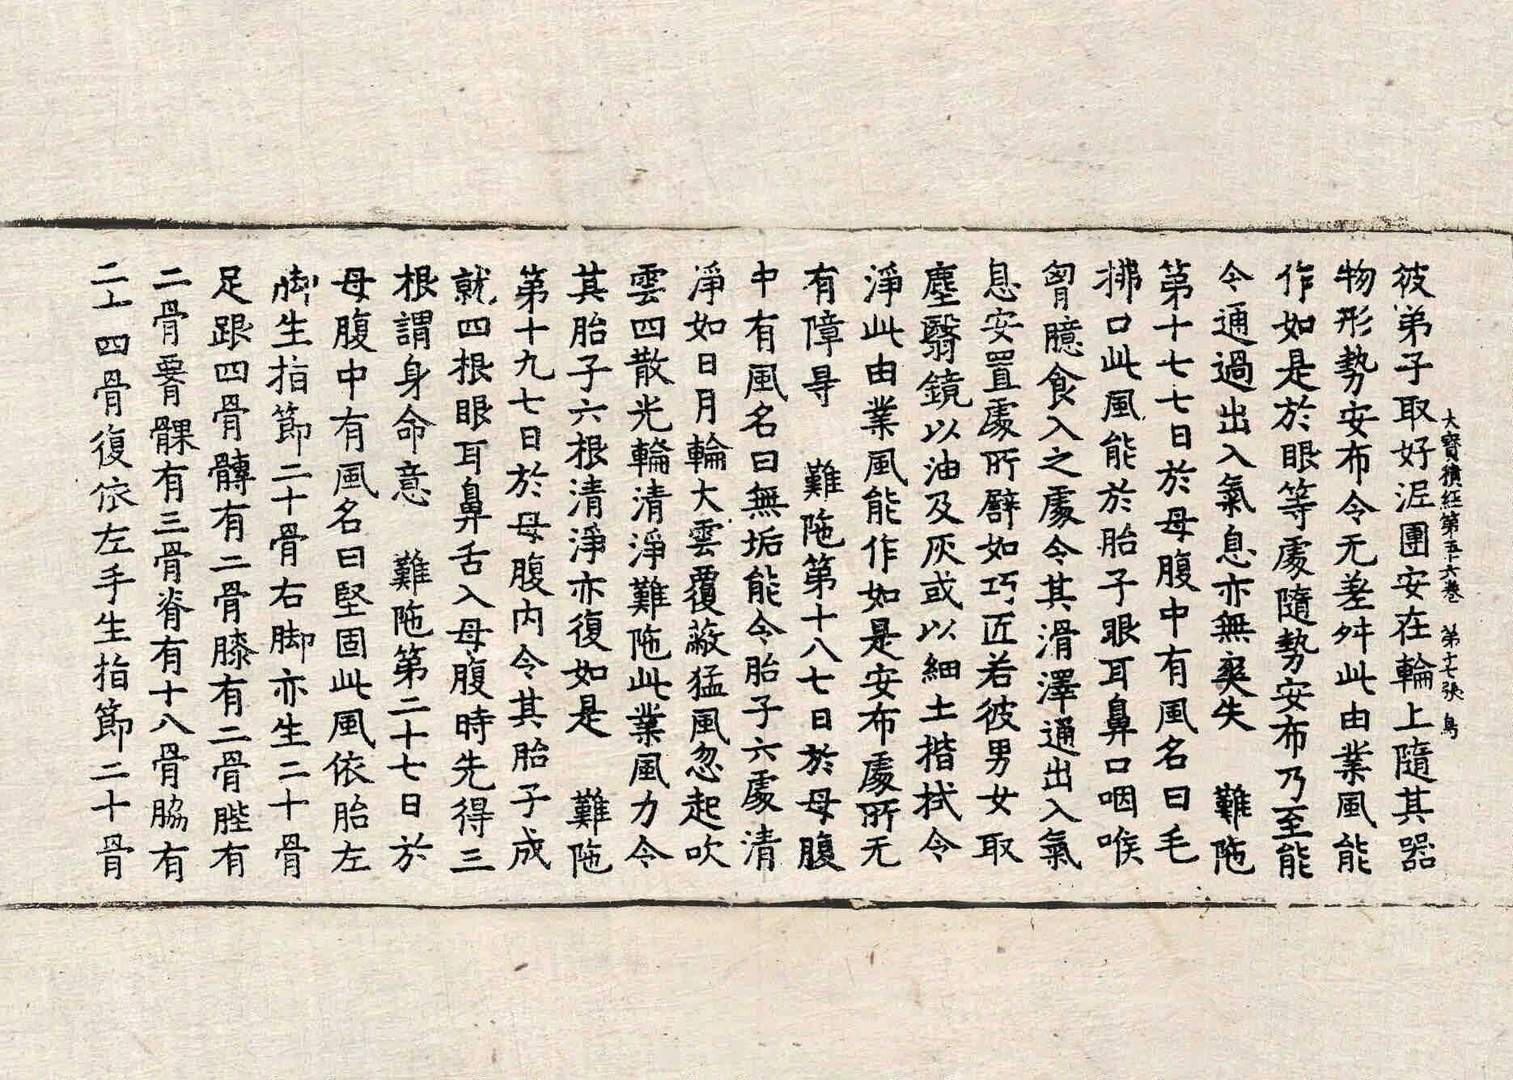 大寳積經第五十六巻　第十七張　鳥
彼弟子取好泥團安在輪上隨其器
物形勢安布令无差舛此由業風能
作如是於眼等處隨勢安布乃至能
令通過出入氣息亦無爽失　難陁
第十七七日於母腹中有風名曰毛
拂口此風能於胎子眼耳鼻口咽喉
胷臆食入之處令其滑澤通出入氣
息安置處所譬如巧匠若彼男女取
塵翳鏡以油及灰或以細土揩拭令
淨此由業風能作如是安布處所无
有障㝵　難陁第十八七日於母腹
中有風名曰無垢能令胎子六處清
淨如日月輪大雲覆蔽猛風忽起吹
雲四散光輪清淨難陁此業風力令
其胎子六根清淨亦復如是　難陁
第十九七日於母腹内令其胎子成
就四根眼耳鼻舌入母腹時先得三
根謂身命意　難陁第二十七日於
母腹中有風名曰堅固此風依胎左
脚生指節二十骨右脚亦生二十骨
足跟四骨髆有二骨膝有二骨䏶有
二骨䯗髁有三骨脊有十八骨脇有
二十四骨復依左手生指節二十骨